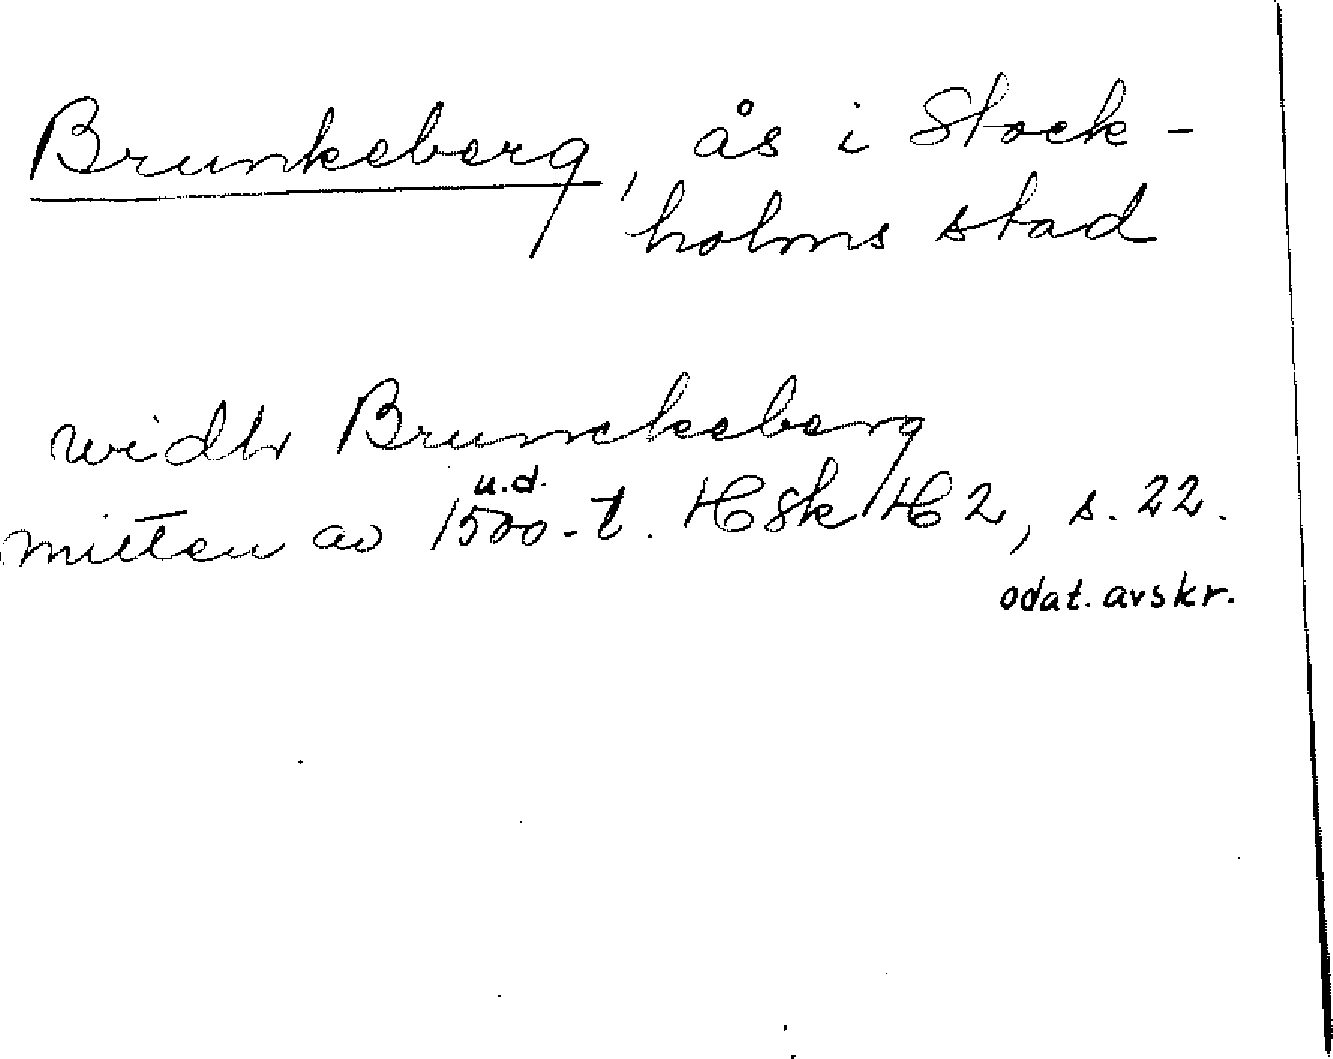 Brunkeberg, ås i Stock-
holms stad
widhr Brunckeberg
u.d.
mitten av 1500-t. HSk H 2, s. 22.
odat. avskr.